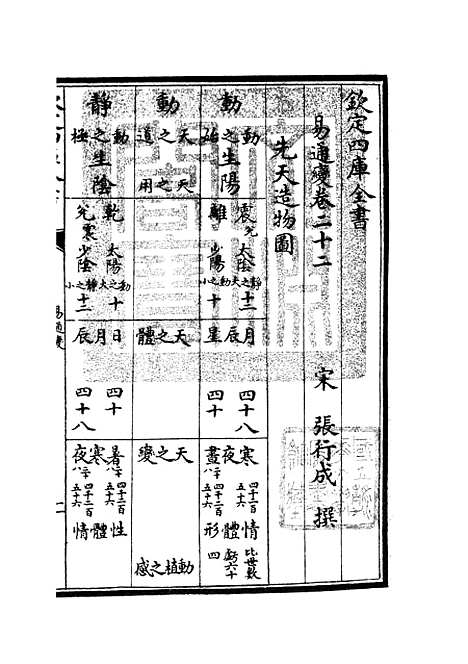 欽定四庫全書
易通變卷二十二
宋 張行成 撰
先天造物圖
動之始生陽 震離兌 太陰少陽 靜之大動之小 十二 十 月星辰 四十八 四十 寒晝夜 四十二百五十六 情形體 比世數
動 天之道 天之用 天之體 天之變 動植之感
靜 動之極生陰 乾兌震 太陽少陰 動之大靜之小 十 十二 日月辰 四十 四十八 暑寒夜 四十二百五十六 性體情
易通變